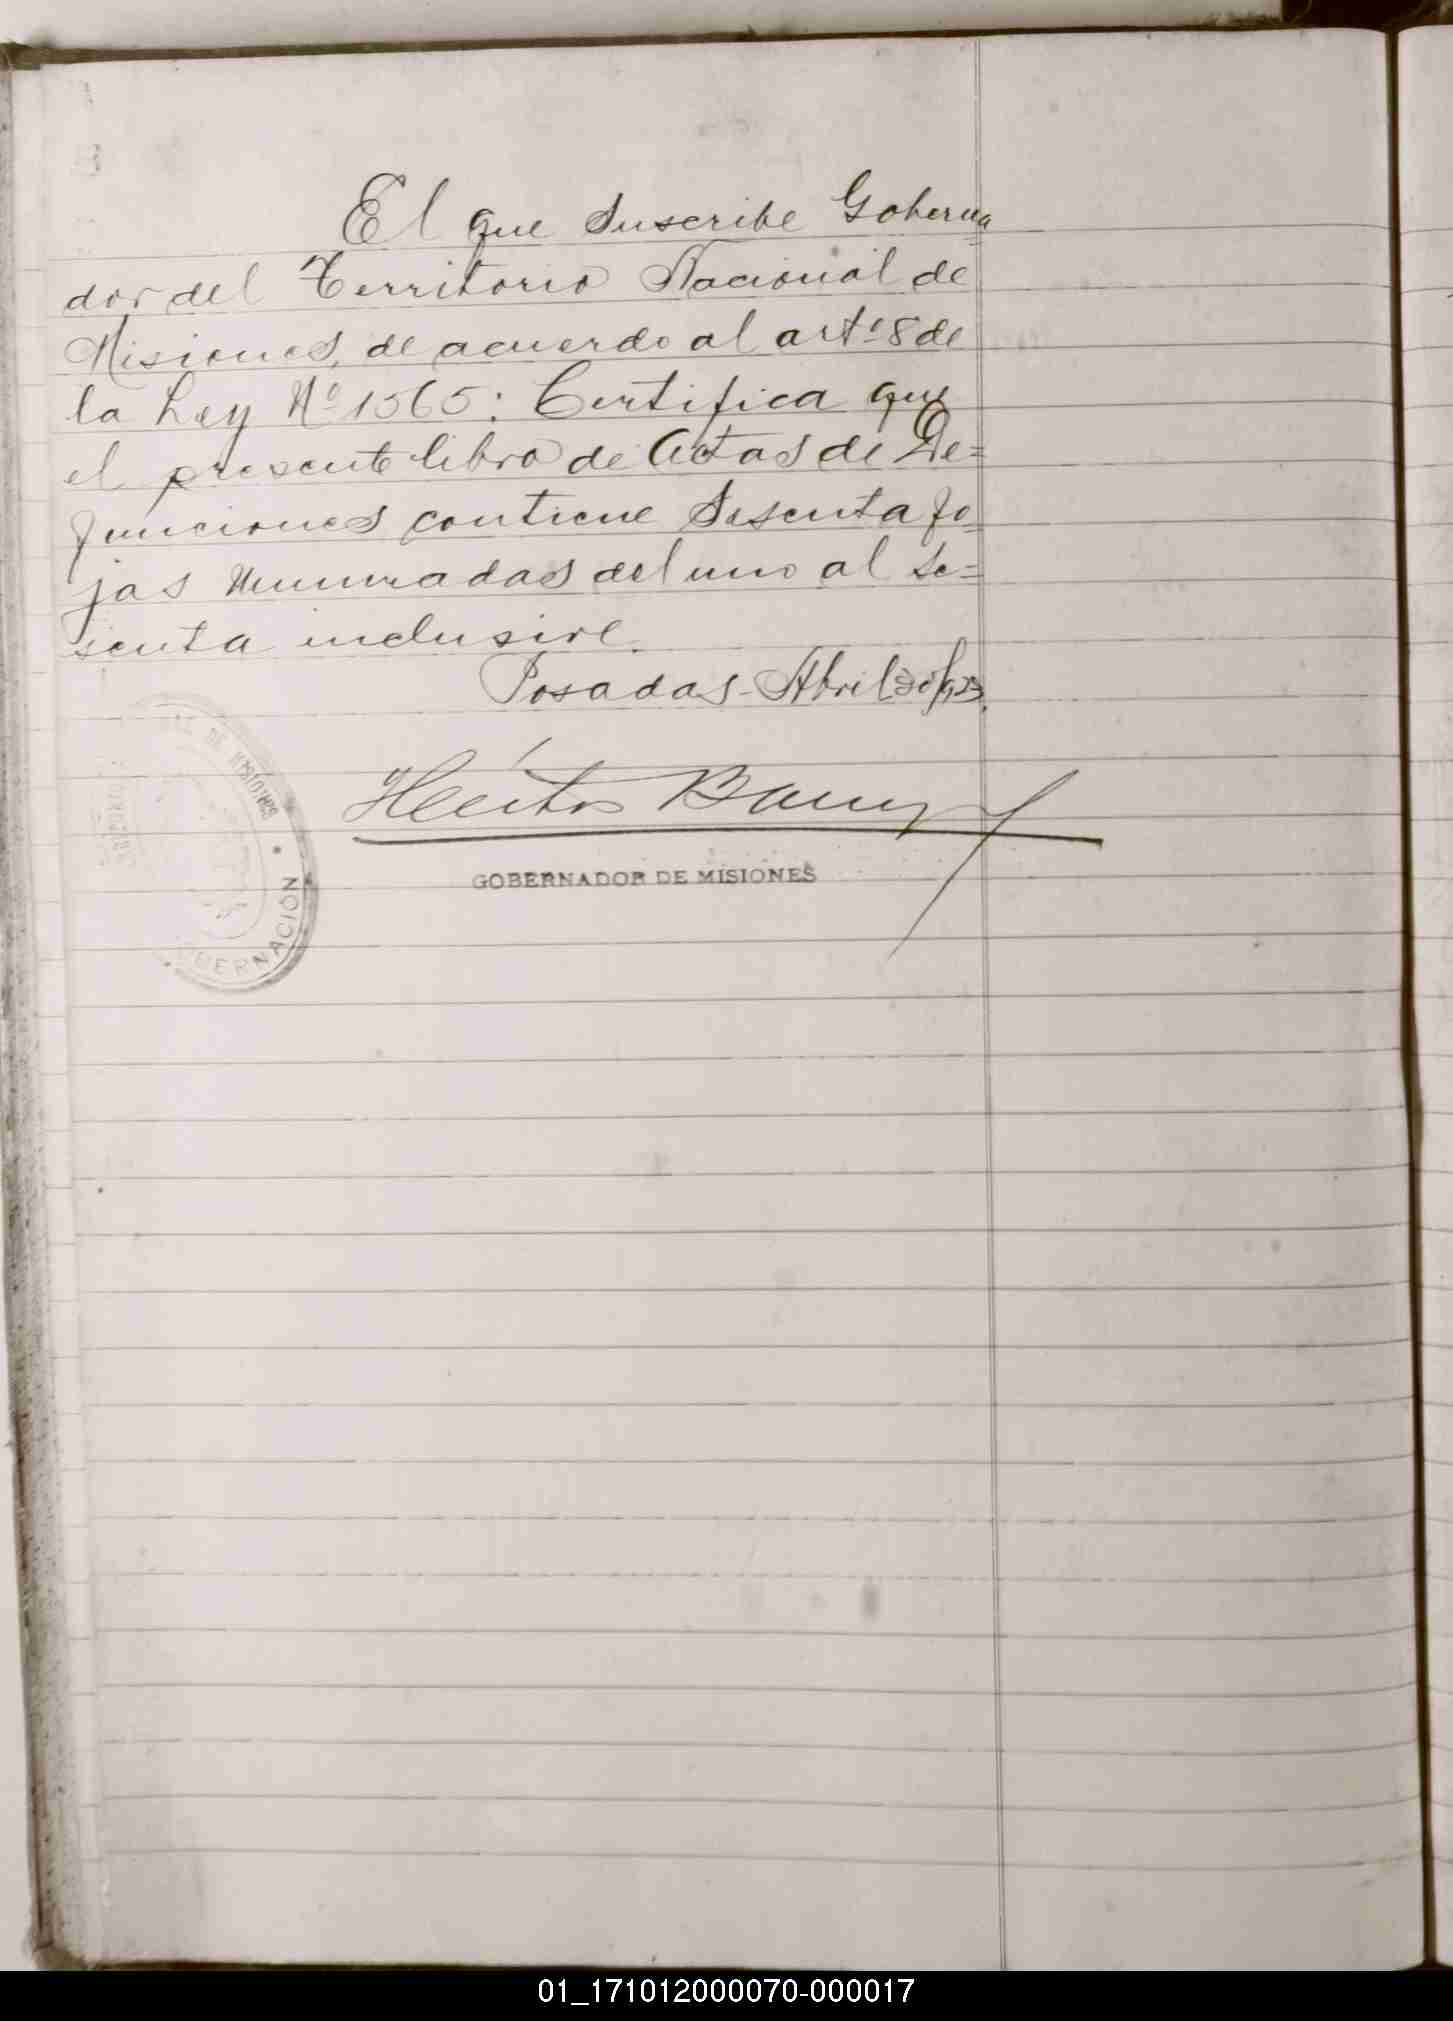 El que Suscribe Goberna
dor del Territorio Nacional de
Misiones, de acuerdo al artº 8 de
la Ley Nº 1565: Certifica que
el presente libro de Actas de De=
funciones contiene Sesenta fo
jas Numeradas del uno al Se=
senta inclusive.
Posadas - Abril 30/923.
Héctor Barreyro
GOBERNADOR DE MISIONES
DE MISIONES
GOBERNACIÓN
01_171012000070-000017